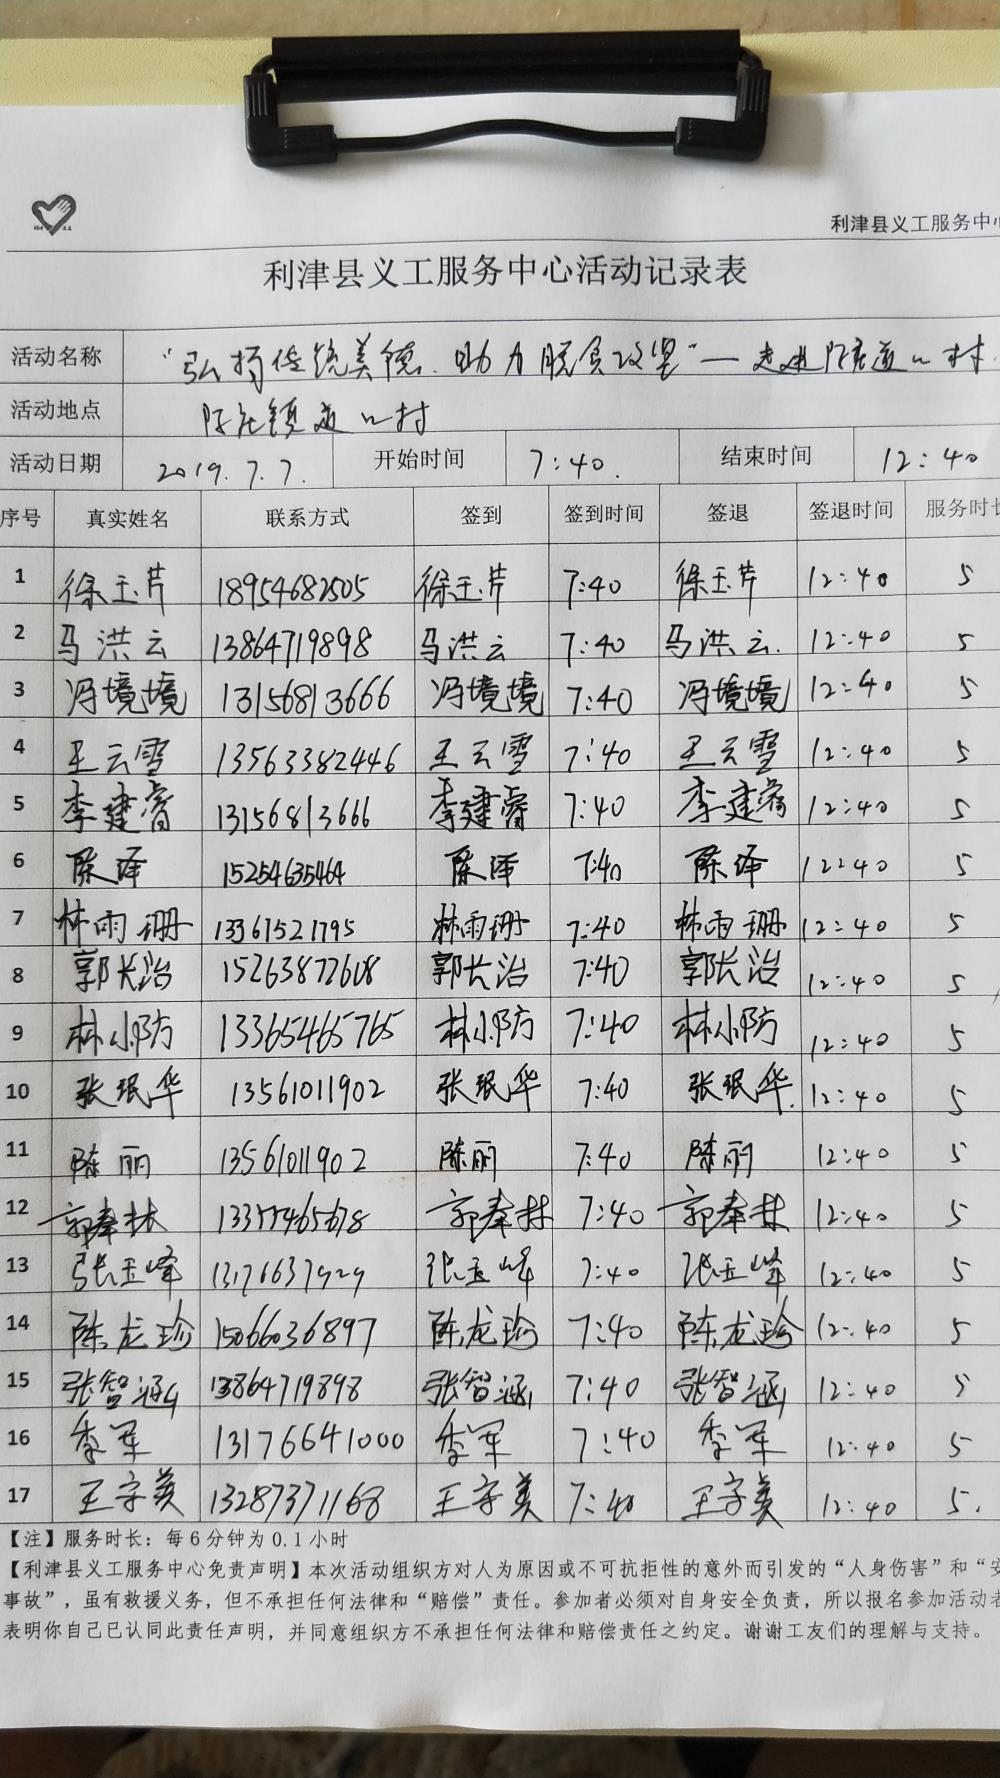 利津县义工服务中
利津县义工服务中心活动记录表
活动名称 "弘扬传统美德.助力脱贫攻坚"—走进陈庄道口村.
活动地点 陈庄镇道口村
活动日期 2019.7.7. 开始时间 7:40. 结束时间 12:40
序号 真实姓名 联系方式 签到 签到时间 签退 签退时间 服务时长
1 徐玉芹 18954682505 徐玉芹 7:40 徐玉芹 12:40 5
2 马洪云 13864719898 马洪云 7:40 马洪云. 12:40 5
3 冯境境 13156813666 冯境境 7:40 冯境境 12:40 5
4 王云雪 13563382446 王云雪 7:40 王云雪 12:40 5
5 李建睿 13156813666 李建睿 7:40 李建睿 12:40 5
6 陈泽 15254635464 陈泽 7:40 陈泽 12:40 5
7 林雨珊 13361521795 林雨珊 7:40 林雨珊 12:40 5
8 郭长治 15263872608 郭长治 7:40 郭长治 12:40 5
9 林小防 13365465765 林小防 7:40 林小防 12:40 5
10 张珉华 13561011902 张珉华 7:40 张珉华. 12:40 5
11 陈丽 13561011902 陈丽 7:40 陈丽 12:40 5
12 郭奉林 郭奉林 7:40 郭奉林 12:40 5
13 张玉峰 13176637929 张玉峰 7:40 张玉峰 12:40 5
14 陈龙珍 15066036897 陈龙珍 7:40 陈龙珍 12:40 5
15 张智涵 13864719898 张智涵 7:40 张智涵 12:40 5
16 李军 13176641000 李军 7:40 李军 12:40 5
17 王字美 13287371168 王字美 7:40 王字美 12:40 5.
【注】服务时长：每6分钟为0.1小时
【利津县义工服务中心免责声明】本次活动组织方对人为原因或不可抗拒性的意外而引发的“人身伤害”和“安
事故”，虽有救援义务，但不承担任何法律和“赔偿”责任。参加者必须对自身安全负责，所以报名参加活动者
表明你自己已认同此责任声明，并同意组织方不承担任何法律和赔偿责任之约定。谢谢工友们的理解与支持。